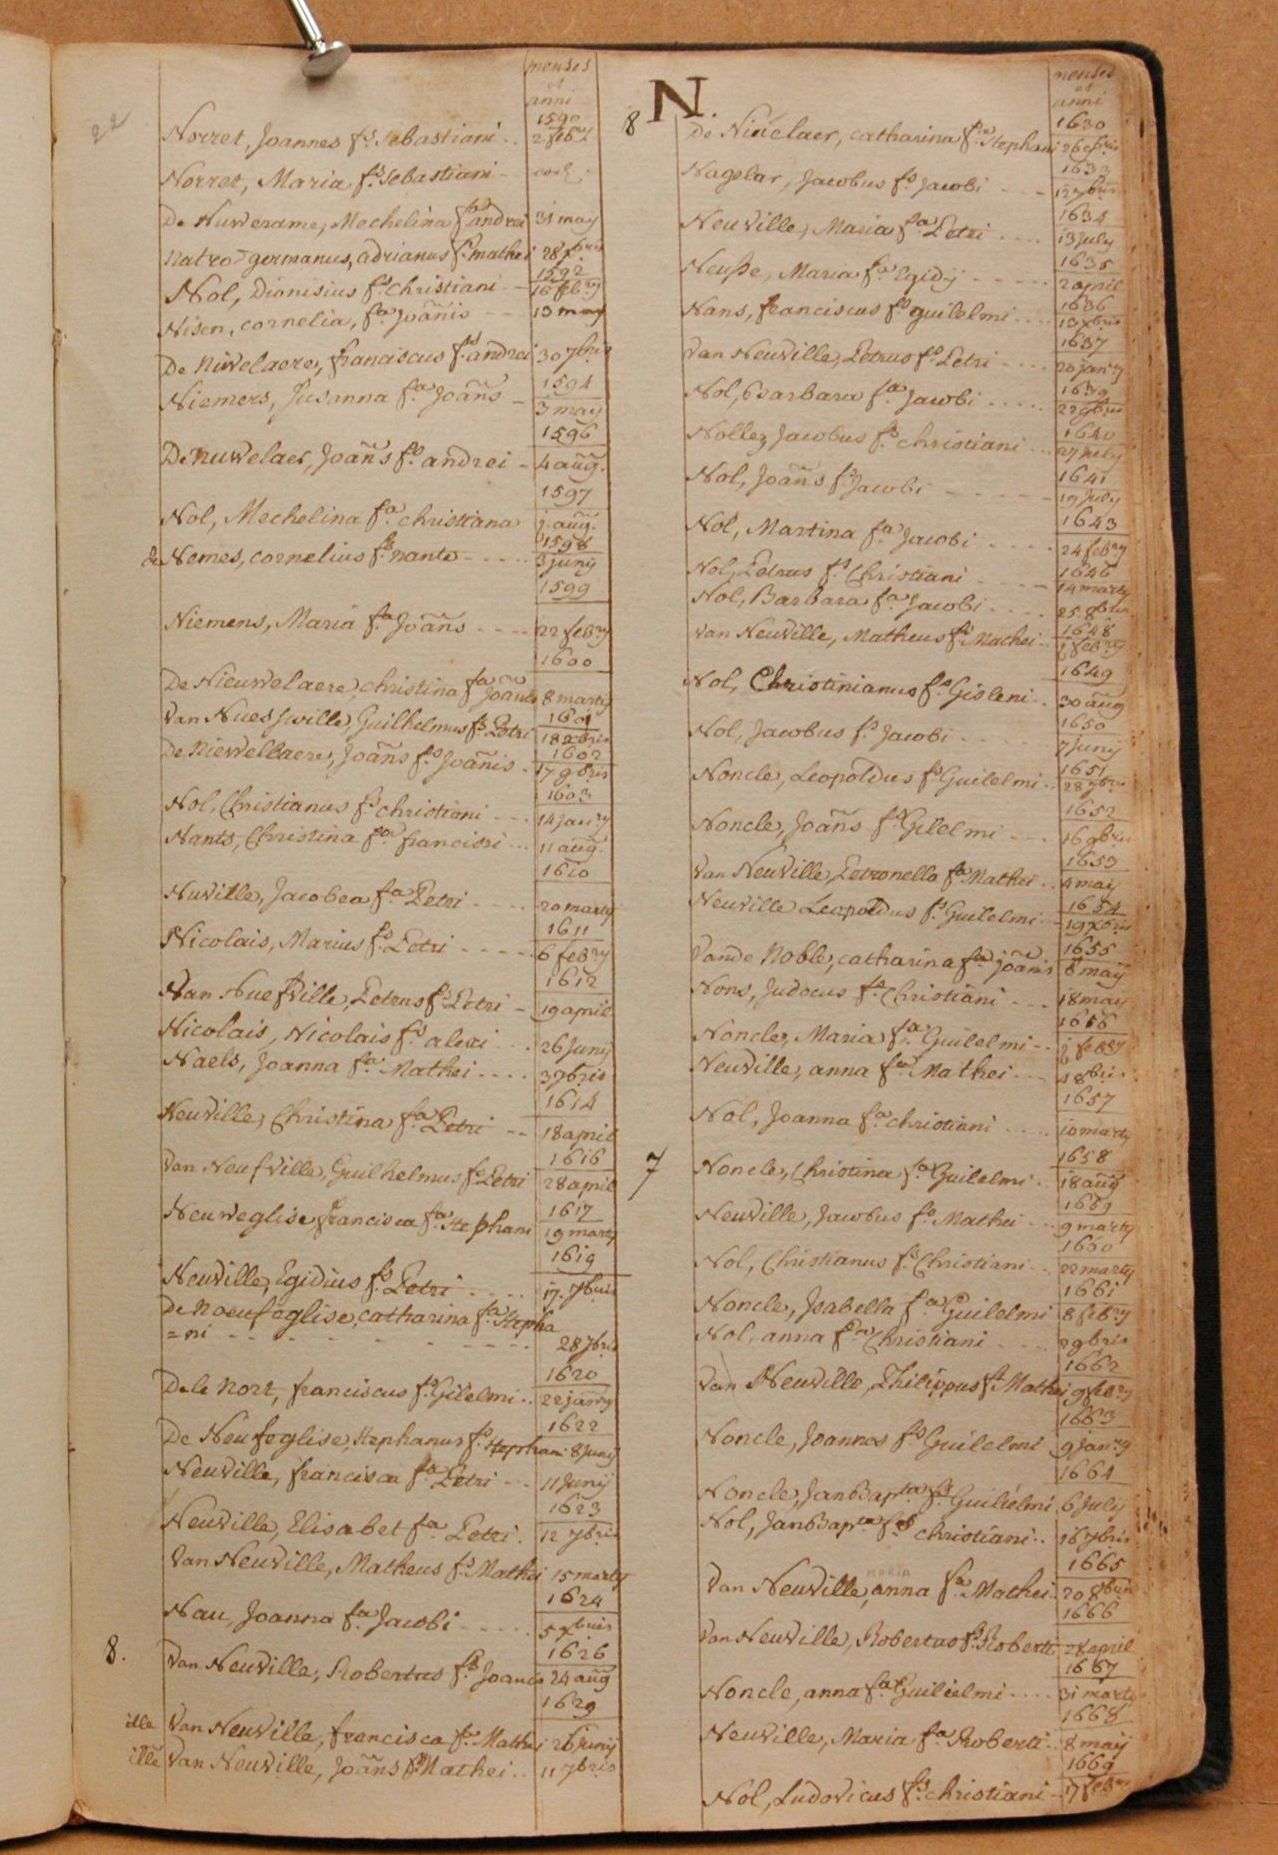 22
menses
et
anni
1590
Norret, Joannes fs. sebastiani .. 2 feb
Norret, Maria fa. sebastiani -
De Nuwerame, Mechelina fa andrei 31 may
natro germanus, adrianus fs. mathei 28 xbris
1592
Nol, Dionisius fs Christiani - 16 feb
Nisen, cornelia, fa Joañis -- 13 may
De Niwelaere, franciscus fs. andrei 30 7bris
1594
Niemers, Susanna fa Joañs - 3 may
1596
De nuwelaer, Joañs fs andrei - 4 aug.
1597
Nol, Mechelina fa christiana j. aug.
1598
de Nemes, cornelius fs nanto ----- 3 junij
1599
Niemens, Maria fa Joañs ---- 22 febry
1600
De Nieuwelaere christina fa Joañis 8 martij
1601
Van Nuessville, Guilhelmus fs. Petri 18 xbris
1602
De Niewellaere, Joañs fs Joañis - 17 9bris
1603
Nol, Christianus fs christiani --- 14 janry
Nants, Christina fa francisci ... 11 aug.
1610
Nuville, Jacobea fa Petri ---- 20 marty
1611
Nicolais, Marius fs. Petri ---- 6 febry
1612
Van Nuefville, Petrus fs Petri - 19 april
Nicolais, Nicolais fs alexi ... 26 Junij
Naels, Joanna fa Mathei .... 3 7bris
1614
Neuville, Christina fa Petri -- 18 april
1616
Van Neufville, Guilhelmus fs Petri 28 april
1617
Neuweglise francisca fa. Stephani 19 marty
1619
Neuville, Egidius fs. Petri .... 17. 7bris
De Noeufeglise, catharina fa. stepha
=ni - - - - - - - - 28 7bris
1620
De le Nort, franciscus fs. Gilelmi .. 22 janry
1622
De Neufeglise, stephanus fs. stephani 8 junij
Neuville, francisca fa Petri --- 11 Junij
1623
Neuville, Elisabet fa Petri. 12 7bris
Van Neuville, Matheus fs. Mathei 15 marty
1624
Nau, Joanna fa. Jacobi ----- 5 xbris
1626
8.
Van Neuville, Robertus fs Joanis 24 aug
1629
ille Van Neuville, francisca fa. Mathei 26 junij
ille Van Neuville, Joañs fs Mathei .. 11 7bris
N.
menses
et
anni
8
1630
De Ninclaer, catharina fa. Stephani 26
Nagelar, Jacobus fs Jacobi ---
1634
Neuville, Maria fa Petri .... 13 july
1635
Neuße, Maria fa Egidij ----- 2 april
1636
Nans, franciscus fs guilelmi .... 13 xbris
1637
Van Neuville, Petrus fs Petri .... 20 janry
1639
Nol, Barbara fa Jacobi .....
1640
Nollez Jacobus fs christiani ... 27 july
1641
Nol, Joañs fs Jacobi ----- 19 July
1643
Nol, Martina fa Jacobi .... 24 febry
1646
Nol, Petrus fs Christiani --- 14 marty
Nol, Barbara fa Jacobi .... 25 8bris
1648
Van Neuville, Matheus fs. Mathei - j febry
1649
Nol, Christinianus fs. Gisleni .. 30 aug
1650
Nol, Jacobus fs Jacobi .. 7 Junij
1651
Noncle, Leopoldus fs Guilelmi ..
1652
Noncle, Joañs fs Gilelmi --- 16 9bris
1653
Van Neuville, Petronella fa Mathei .. 4 may
1654
Neuville Leopoldus fs. Guilelmi -- 19 xbris
1655
Vande Noble, catharina fa joañis 8 maij
Nons, Judocus fs. Christiani --- 18 may
1656
Noncle, Maria fa. Guilelmi .. j febry
Neuville, anna fa Mathei --- 1 8bris
1657
Nol, Joanna fa christiani .... 10 marty
1658
7
Noncle, Christina fa Guilelmi .. 18 aug
1659
Neuville, Jacobus fs. Mathei --- 9 marty
1660
Nol, Christianus fs. Christiani ... 22 marty
1661
Noncle, Isabella fa Guilelmi 8 febry
Nol, anna fa Christiani .... 2 9bris
1662
Van Neuville, Philippus fs Mathei 19 febry
1663
Noncle, Joannes fs Guilelmi . 9 janry
1664
Noncle, JanBapta fs Guilielmi 6 july
Nol, JanBapta fs christiani .. 16 7bris
1665
MARIA
Van Neuville, anna fa Mathei .. 20 8bris
1666
Van Neuville, Robertus fs Roberti april
1667
Noncle, anna fa Guilielmi .... 31 marty
1668
Neuville, Maria fa Roberti .. 8 maij
1669
Nol, Ludovicus fs christiani - 17 febry